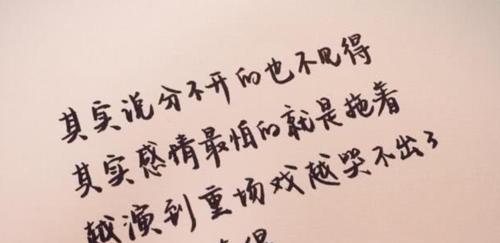 其实说分不开的也不见得
其实感情最怕的就是拖着
越演到重场戏越哭不出了